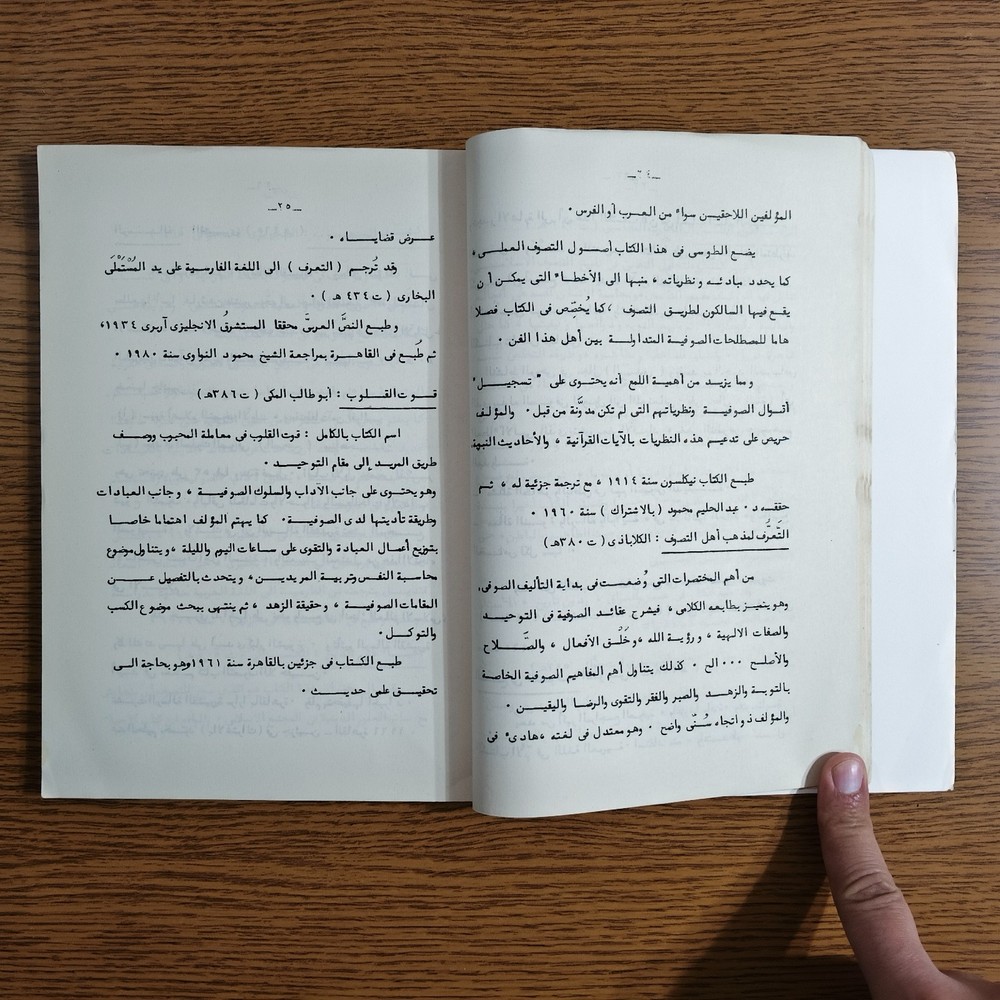 ـ٢٤ـ
المؤلفين اللاحقين سواء من العرب أو الفرس .
يضع الطوسى فى هذا الكتاب أصول التصوف العملى ،
كما يحدد مبادئه ونظرياته ، منبها الى الأخطاء التى يمكن أن
يقع فيها السالكون لطريق التصوف ، كما يُخصِّص فى الكتاب فصلا
هاما للمصطلحات الصوفية المتداولة بين أهل هذا الفن .
ومما يزيد من أهمية اللمع أنه يحتوى على " تسجيل "
أقوال الصوفية ونظرياتهم التى لم تكن مدوَّنة من قبل . والمؤلف
حريص على تدعيم هذه النظريات بالآيات القرآنية ، والأحاديث النبوية
طبع الكتاب نيكلسون سنة ١٩١٤ ، مع ترجمة جزئية له ، ثم
حققه د . عبد الحليم محمود ( بالاشتراك ) سنة ١٩٦٠ .
التَّعرُّف لمذهب أهل التصوف : الكلاباذى ( ت ٣٨٠هـ )
من أهم المختصرات التى وُضعت فى بداية التأليف الصوفى،
وهو يتميز بطابعه الكلامى ، فيشرح عقائد الصوفية فى التوحيد
والصفات الالهية ، ورؤية الله ، وخَلْق الأفعال ، والصَّلاح
والأصلح ... الخ . كذلك يتناول أهم المفاهيم الصوفية الخاصة
بالتوبة والزهد والصبر والفقر والتقوى والرضا واليقين .
والمؤلف ذو اتجاه سُنّى واضح . وهو معتدل فى لغته ، هادىء فى
ـ٢٥ـ
عرض قضاياه .
وقد تُرجم ( التعرف ) الى اللغة الفارسية على يد المُسْتَمْلَى
البخارى ( ت ٤٣٤ هـ ) .
وطبع النصَّ العربىَّ محققا المستشرقُ الانجليزى آربرى ١٩٣٤،
ثم طُبع فى القاهرة بمراجعة الشيخ محمود النواوى سنة ١٩٨٠ .
قوت القلوب : أبو طالب المكى ( ت ٣٨٦هـ )
اسم الكتاب بالكامل : قوت القلوب فى معاملة المحبوب ووصف
طريق المريد إلى مقام التوحيد .
وهو يحتوى على جانب الآداب والسلوك الصوفية ، وجانب العبادات
وطريقة تأديتها لدى الصوفية . كما يهتم المؤلف اهتماما خاصا
بتوزيع أعمال العبادة والتقوى على ساعات اليوم والليلة ، ويتناول موضوع
محاسبة النفس وتربية المريدين ، ويتحدث بالتفصيل عن
المقامات الصوفية ، وحقيقة الزهد ، ثم ينتهى ببحث موضوع الكسب
والتوكل .
طبع الكتاب فى جزئين بالقاهرة سنة ١٩٦١وهو بحاجة الى
تحقيق علمى حديث .